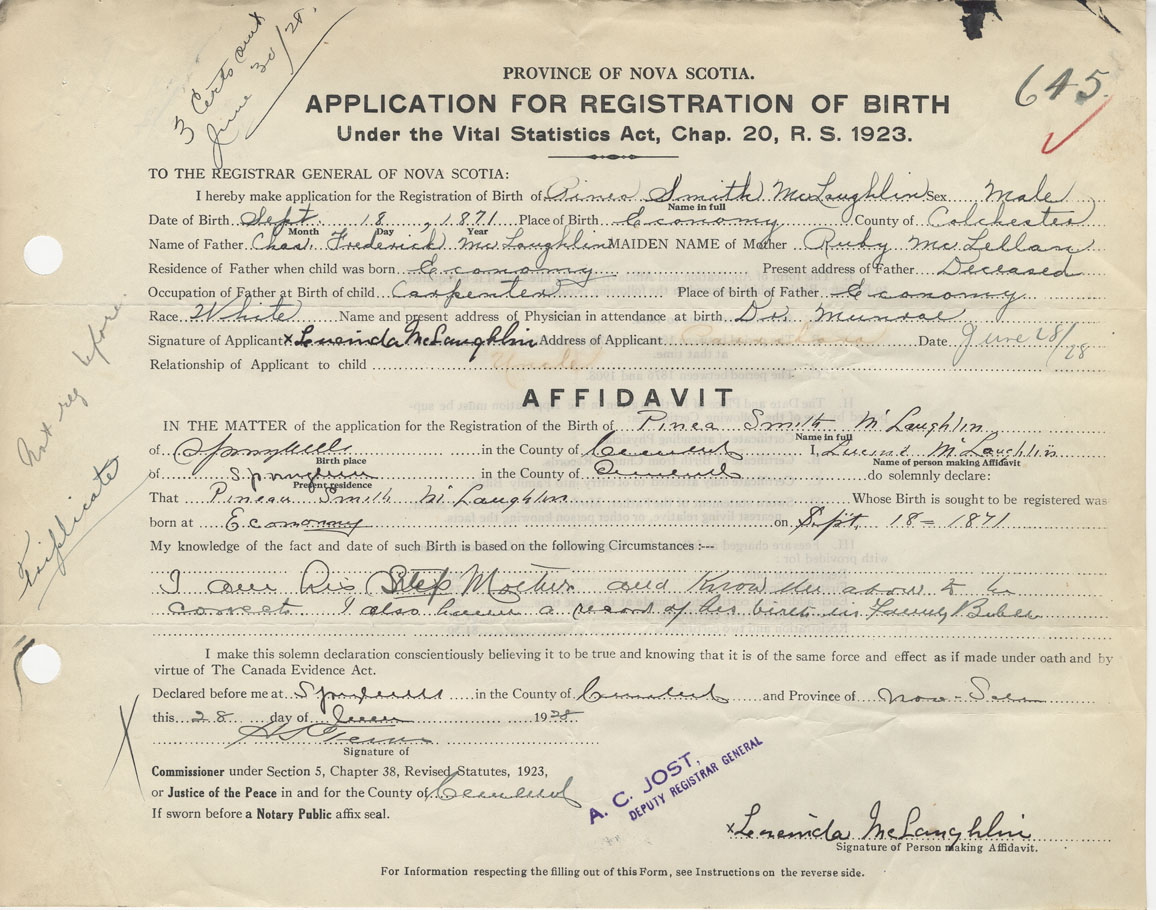 3 Certs
June 30/28.
645.
PROVINCE OF NOVA SCOTIA.
APPLICATION FOR REGISTRATION OF BIRTH
Under the Vital Statistics Act, Chap. 20, R. S. 1923.
TO THE REGISTRAR GENERAL OF NOVA SCOTIA:
I hereby make application for the Registration of Birth of Pineo Smith McLaughlin Sex Male
Name in full
Date of Birth Sept. 18, 1871 Place of Birth Economy County of Colchester
Month Day Year
Name of Father Chas. Frederick McLaughlin MAIDEN NAME of Mother Ruby McLellan
Residence of Father when child was born Economy Present address of Father Deceased
Occupation of Father at Birth of child Carpenter Place of birth of Father Economy
Race White Name and present address of Physician in attendance at birth Dr. Munroe
Signature of Applicant x Lucinda McLaughlin Address of Applicant Date June 28/28
Relationship of Applicant to child
Not reg before.
Triplicate
AFFIDAVIT
IN THE MATTER of the application for the Registration of the Birth of Pinea Smith McLaughlin
Name in full
of Springhill in the County of Cumberland I, Lucinda McLaughlin
Birth place Name of person making Affidavit
of Springhill in the County of Cumberland do solemnly declare:
Present residence
That Pineau Smith McLaughlin Whose Birth is sought to be registered was
born at Economy on Sept. 18 = 1871
My knowledge of the fact and date of such Birth is based on the following Circumstances :---
I am his Step Mother and know the above to be
correct. I also have a record of his birth in Family Bible
I make this solemn declaration conscientiously believing it to be true and knowing that it is of the same force and effect as if made under oath and by
virtue of The Canada Evidence Act.
Declared before me at Springhill in the County of Cumberland and Province of Nova-Scotia
this 28 day of June 1928
Signature of
Commissioner under Section 5, Chapter 38, Revised Statutes, 1923,
or Justice of the Peace in and for the County of Cumberland
If sworn before a Notary Public affix seal.
A. C. JOST,
DEPUTY REGISTRAR GENERAL
x Lucinda McLaughlin
Signature of Person making Affidavit.
For Information respecting the filling out of this Form, see Instructions on the reverse side.